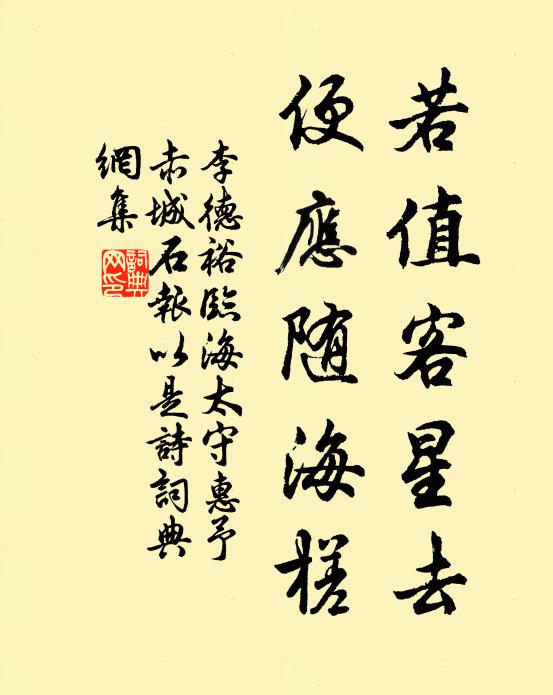 若值客星去
便應随海槎
李德裕臨海太守惠予
赤城石報以是詩詞典
網集
詞典
网印